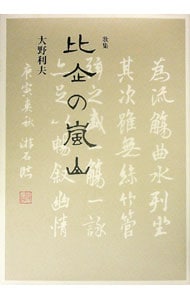 歌集
比企の嵐山
大野利夫
為流觴曲水列坐
其次雖無絲竹管
之盛一觴一詠
足以暢叙幽情
庚寅